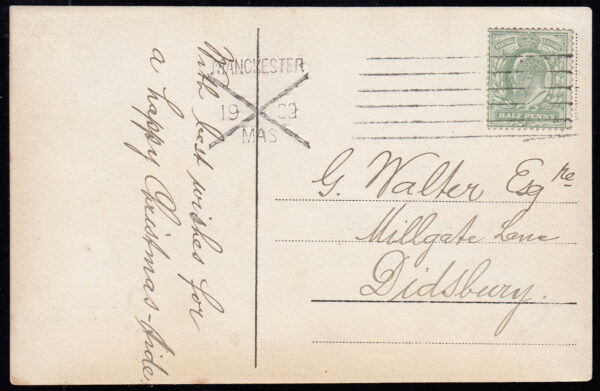 With best wishes for
a happy Christmas-tide.
MANCHESTER
19
MAS
POSTAGE REVENUE
HALF PENNY
G. Walter Esqre
Millgate Lane
Didsbury.